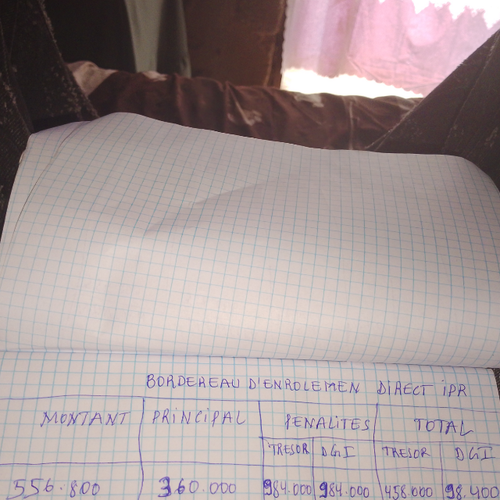 BORDEREAU D'ENROLEMEN DIRECT iPR
MONTANT PRINCIPAL PENALITES TOTAL
TRESOR DGI TRESOR DGI
556.800 360.000 984.000 984.000 458.000 98.400